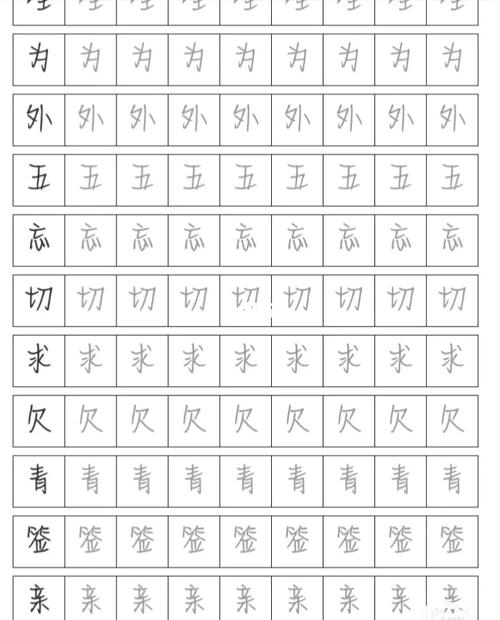 为为为为为为为为为
外外外外外外外外外
五五五五五五五五五
忘忘忘忘忘忘忘忘忘
切切切切切切切切切
求求求求求求求求求
欠欠欠欠欠欠欠欠欠
青青青青青青青青青
签签签签签签签签签
亲亲亲亲亲亲亲亲亲